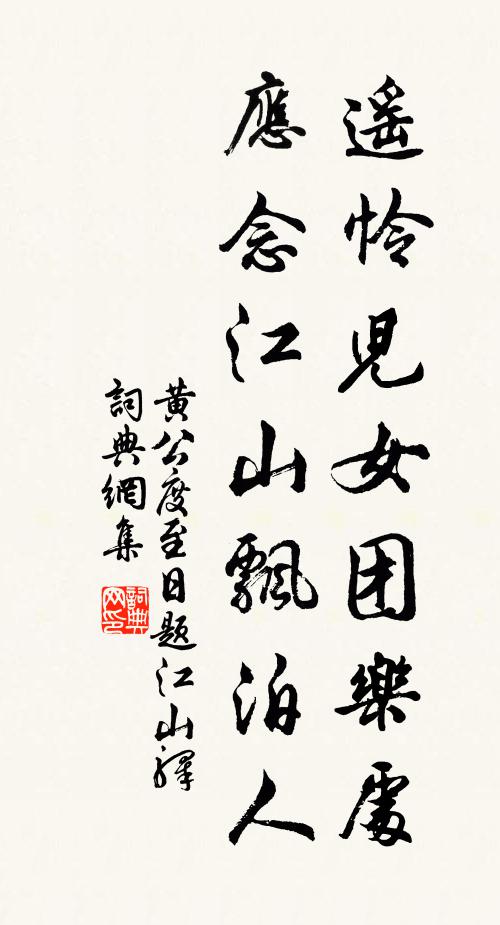 遥怜兒女团樂處
應念江山飄泊人
黄公度至日题江山驛
詞典網集
詞典
网印